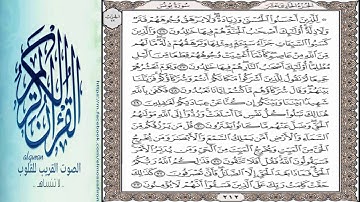 الجزء الحادي عشر
سورة يونس
للذين أحسنوا الحسنى وزيادة ولا يرهق وجوههم قتر
ولا ذلة أولئك أصحاب الجنة هم فيها خالدون ٢٦ والذين
كسبوا السيئات جزاء سيئة بمثلها وترهقهم ذلة ما لهم
من الله من عاصم كأنما أغشيت وجوههم قطعا من الليل
مظلما أولئك أصحاب النار هم فيها خالدون ٢٧ ويوم
نحشرهم جميعا ثم نقول للذين أشركوا مكانكم أنتم وشركاؤكم
فزيلنا بينهم وقال شركاؤهم ما كنتم إيانا تعبدون ٢٨
فكفى بالله شهيدا بيننا وبينكم إن كنا عن عبادتكم لغافلين ٢٩
هنالك تبلوا كل نفس ما أسلفت وردوا إلى الله مولاهم الحق
وضل عنهم ما كانوا يفترون ٣٠ قل من يرزقكم من
السماء والأرض أمن يملك السمع والأبصار ومن يخرج الحي
من الميت ويخرج الميت من الحي ومن يدبر الأمر
فسيقولون الله فقل أفلا تتقون ٣١ فذلكم الله ربكم
الحق فماذا بعد الحق إلا الضلال فأنى تصرفون ٣٢ كذلك
حقت كلمت ربك على الذين فسقوا أنهم لا يؤمنون ٣٣
٢١٢
القرآن الكريم
alquran
الصوت القريب للقلوب